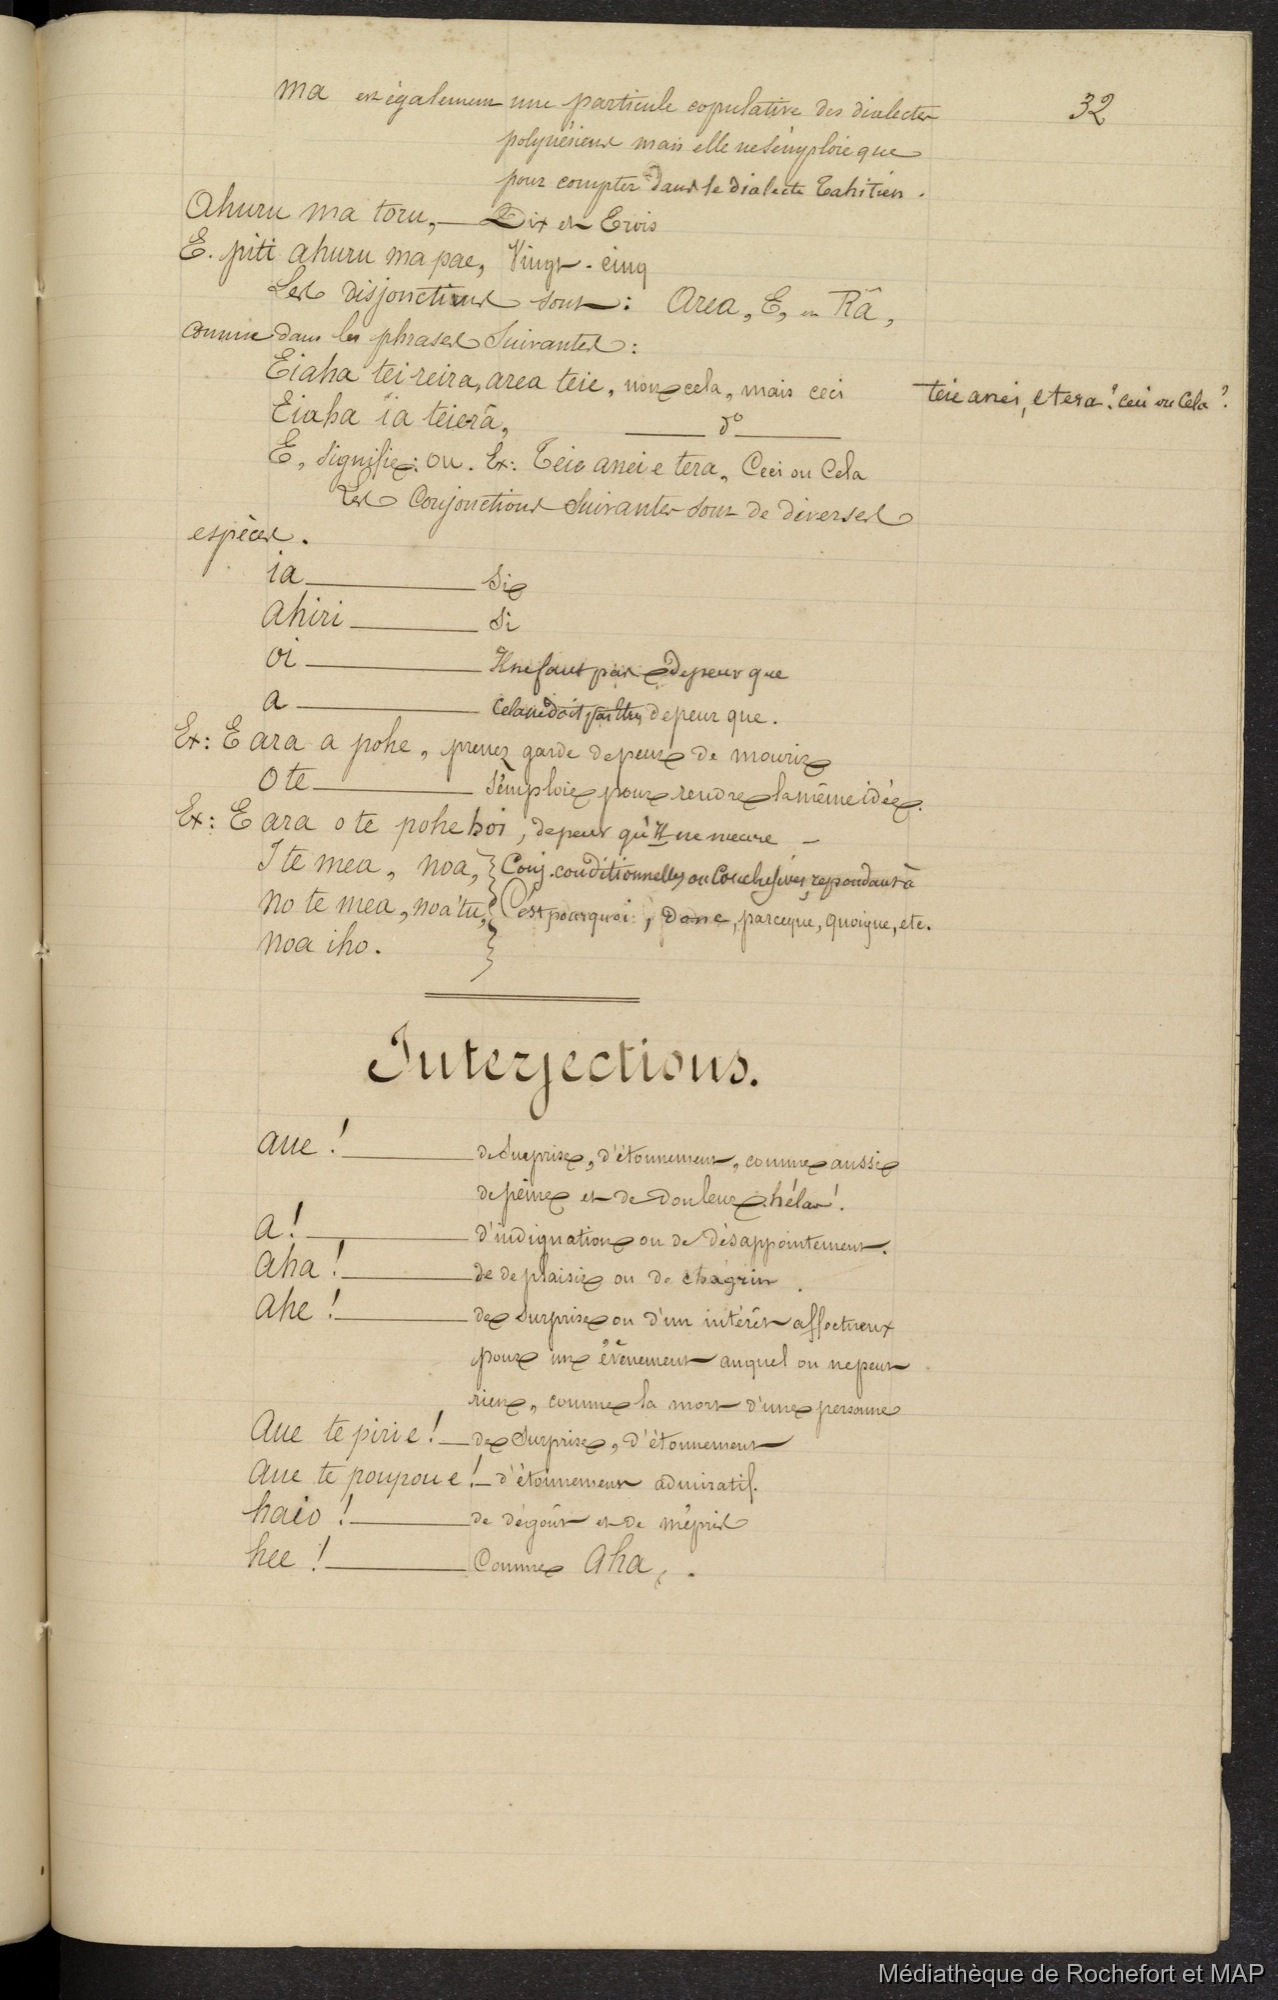 32
ma est également une particule copulative des dialectes
polynésiens mais elle ne s'emploie que
pour compter dans le dialecte Tahitien.
Ahuru ma toru, Dix et Trois
E. piti ahuru ma pae, Vingt-cinq
Les disjonctives sont: Area, E, et Râ,
comme dans les phrases suivantes:
Eiaha tei reira, area teie, non cela, mais ceci
teie anei, e tera? ceci ou cela?
Eiaha ïa teierâ, d°
E, signifie: ou. Ex: Teie anei e tera, Ceci ou Cela
Les Conjonctions suivantes sont de diverses
espèces.
ia Si
ahiri Si
oi Il ne faut pas depeur que
a Cela ne doit pas être depeur que.
Ex: E ara a pohe, prenez garde depeur de mourir
o te S'emploie pour rendre la même idée.
Ex: E ara o te pohe hoi, depeur qu'Il ne meure
I te mea, noa, Conj. conditionnelles ou Conclusives, repondant à
no te mea, noa'tu, C'est pourquoi, donc, parceque, quoique, etc.
noa iho.
Interjections.
aue! de surprise, d'étonnement, comme aussi
de peine et de douleur. hélas!
a! d'indignation ou de désappointement.
aha! de de plaisir ou de chagrin.
ahe! de surprise ou d'un intérêt affectueux
pour un évènement auquel on ne peut
rien, comme la mort d'une personne
Aue te pirie! de surprise, d'étonnement
aue te poupoue! d'étonnement admiratif.
haio! de dégoût et de mépris
hee! Comme Aha,.
Médiathèque de Rochefort et MAP